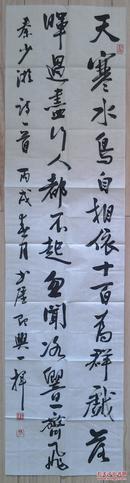 天寒水鳥自相依十百為群戲落
暉過盡行人都不起忽聞冰響一齊飛
秦少游詩一首 丙戌春月 即興一揮